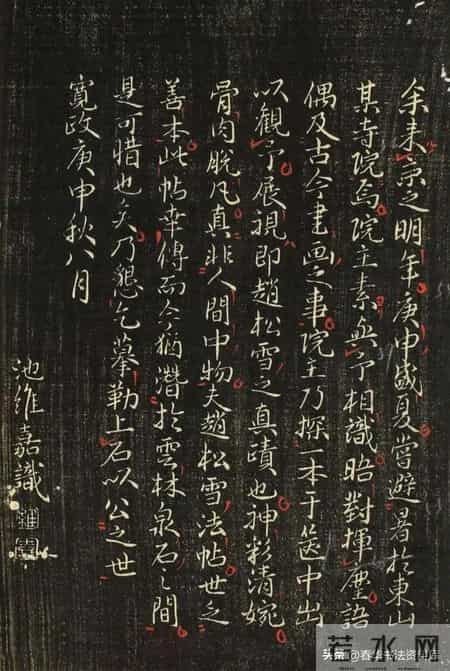 余来京之明年庚申盛夏嘗避暑於東山
某寺院焉院主素与予相識晤對揮麈語
偶及古今書画之事院主乃探一本于篋中出
以觀予展視即趙松雪之真蹟也神彩清婉
骨肉脱凡真非人間中物夫趙松雪法帖世之
善本此帖幸傳而今猶潜於雲林泉石之間
是可惜也矣乃懇乞摹勒上石以公之世
寛政庚申秋八月
池維嘉識
头条 @春华书法资料库
若水网